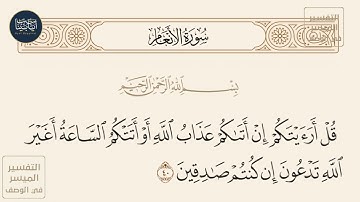 سُورَةُ الأَنْعَامِ
بِسْمِ اللَّهِ الرَّحْمَنِ الرَّحِيمِ
قُلْ أَرَءَيْتَكُمْ إِنْ أَتَىٰكُمْ عَذَابُ اللَّهِ أَوْ أَتَتْكُمُ السَّاعَةُ أَغَيْرَ
اللَّهِ تَدْعُونَ إِن كُنتُمْ صَٰدِقِينَ ٤٠
التفسير
الميسر
في الوصف
التفسير
الميسر
في الوصف